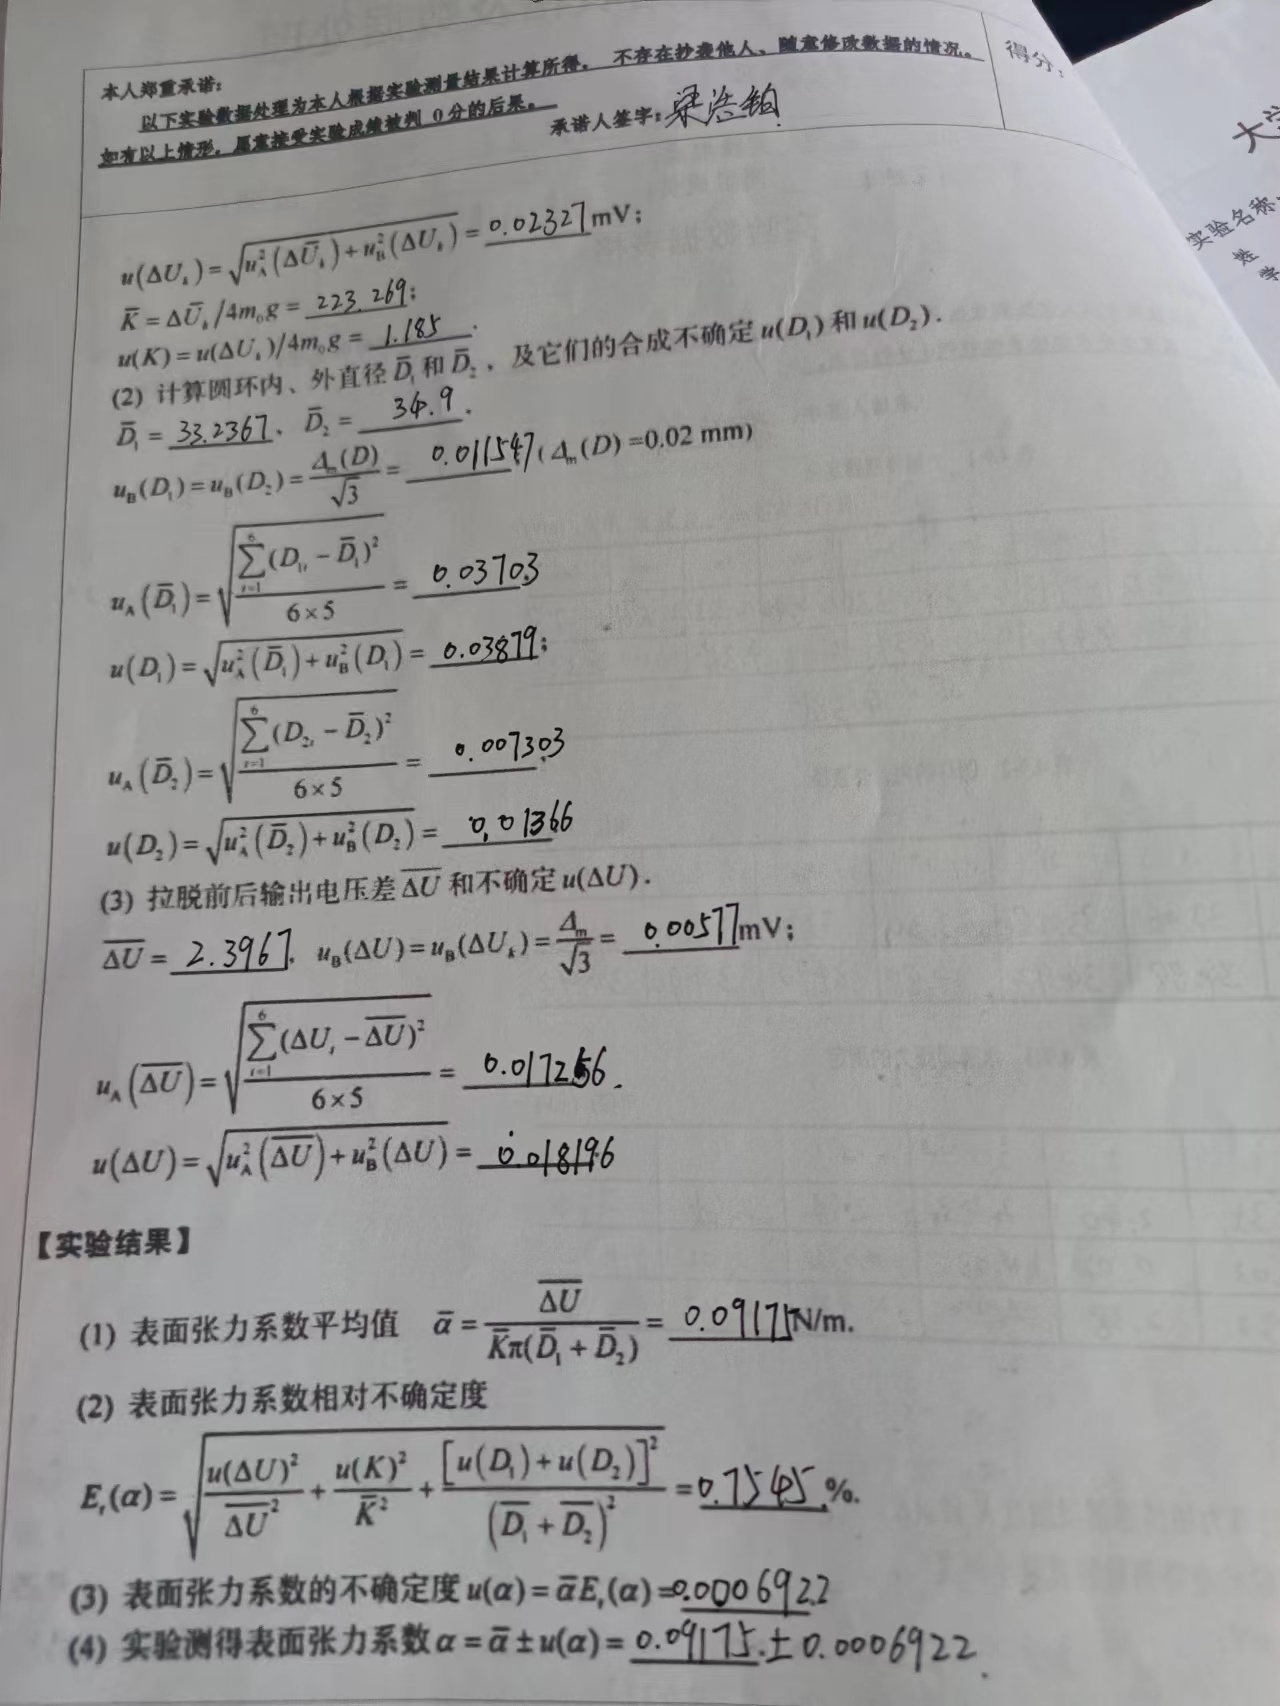 本人郑重承诺:
以下实验数据处理为本人根据实验测量结果计算所得, 不存在抄袭他人、随意修改数据的情况。
如有以上情形,愿意接受实验成绩被判 0 分的后果。
承诺人签字:梁浩铂
得分:
u(ΔU_k)=√(u_A²(ΔŪ_k)+u_B²(ΔU_k))=0.02327mV;
K̄=ΔŪ_k/4m₀g=223.269;
u(K)=u(ΔU_k)/4m₀g=1.185.
(2) 计算圆环内、外直径D̄₁和D̄₂, 及它们的合成不确定u(D₁)和u(D₂).
D̄₁=33.2367、D̄₂=34.9.
u_B(D₁)=u_B(D₂)=Δ_m(D)/√3=0.011547(Δ_m(D)=0.02 mm)
u_A(D̄₁)=√(∑_{i=1}^{6}(D₁ᵢ-D̄₁)²/(6×5))=0.03703
u(D₁)=√(u_A²(D̄₁)+u_B²(D₁))=0.03879;
u_A(D̄₂)=√(∑_{i=1}^{6}(D₂ᵢ-D̄₂)²/(6×5))=0.007303.
u(D₂)=√(u_A²(D̄₂)+u_B²(D₂))=0.01366
(3) 拉脱前后输出电压差ΔU̅和不确定u(ΔU).
ΔU̅=2.3967. u_B(ΔU)=u_B(ΔU_k)=Δ_m/√3=0.00577mV;
u_A(ΔU̅)=√(∑_{i=1}^{6}(ΔUᵢ-ΔU̅)²/(6×5))=0.017256.
u(ΔU)=√(u_A²(ΔU̅)+u_B²(ΔU))=0.018196
【实验结果】
(1) 表面张力系数平均值 ᾱ=ΔU̅/(K̄π(D̄₁+D̄₂))=0.09175N/m.
(2) 表面张力系数相对不确定度
E_r(α)=√(u(ΔU)²/ΔU̅²+u(K)²/K̄²+[u(D₁)+u(D₂)]²/(D̄₁+D̄₂)²)=0.7545%.
(3) 表面张力系数的不确定度u(α)=ᾱE_r(α)=0.0006922
(4) 实验测得表面张力系数α=ᾱ±u(α)=0.09175.±0.0006922.
大学
实验名称
姓
学